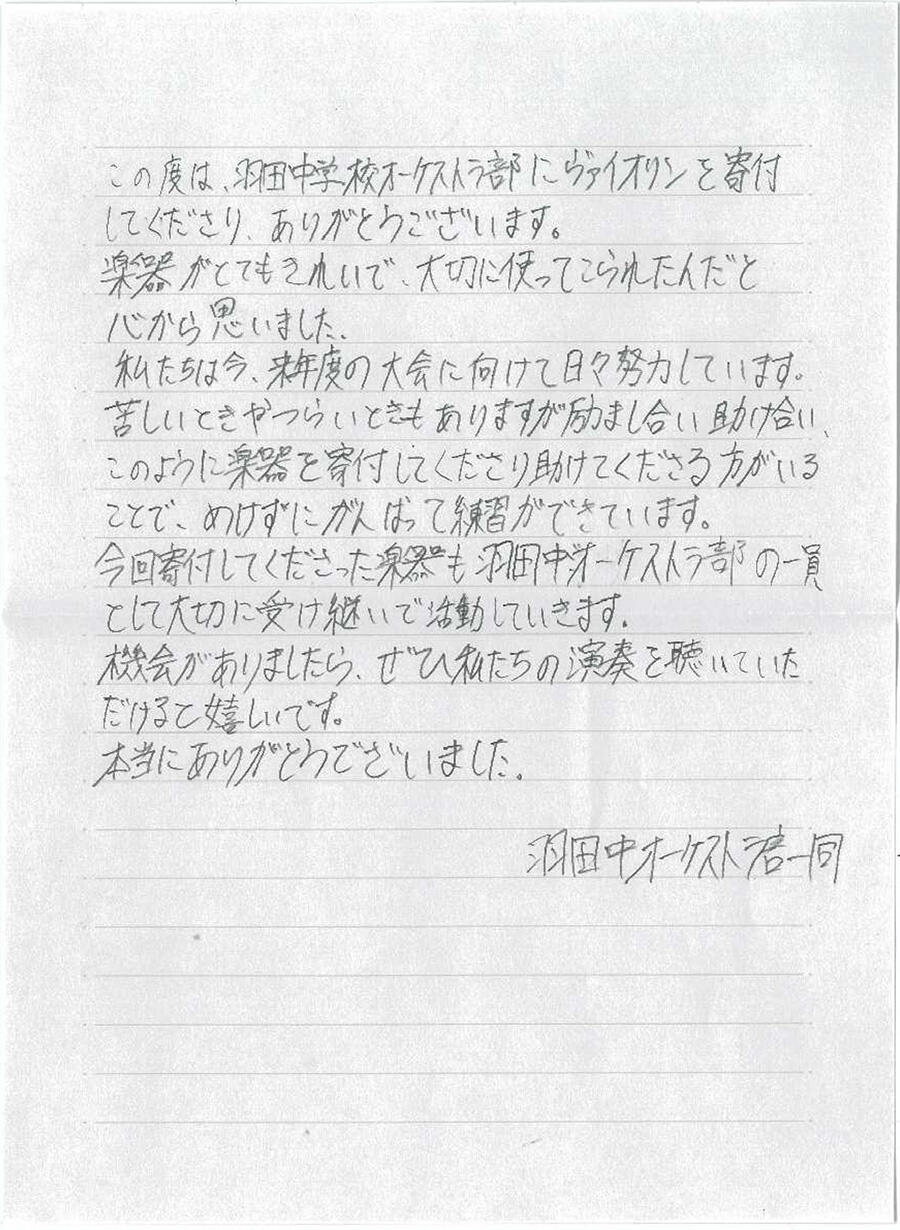 この度は、羽田中学校オーケストラ部にヴァイオリンを寄付
してくださり、ありがとうございます。
楽器がとてもきれいで、大切に使ってこられたんだと
心から思いました。
私たちは今、来年度の大会に向けて日々努力しています。
苦しいときやつらいときもありますが励まし合い助け合い、
このように楽器を寄付してくださり助けてくださる方がいる
ことで、めげずにがんばって練習ができています。
今回寄付してくださった楽器も羽田中オーケストラ部の一員
として大切に受け継いで活動していきます。
機会がありましたら、ぜひ私たちの演奏を聴いていた
だけると嬉しいです。
本当にありがとうございました。
羽田中オーケストラ部一同